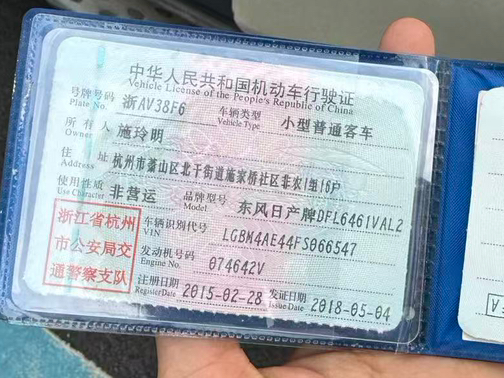 中华人民共和国机动车行驶证
Vehicle License of the People's Republic of China
号牌号码 浙AV38F6 车辆类型 小型普通客车
Plate No. Vehicle Type
所有人 施玲明
Owner
住址 杭州市萧山区北干街道施家桥社区非农1组16户
Address
使用性质 非营运 品牌型号 东风日产牌DFL6461VAL2
Use Character Model
浙江省杭州
市公安局交
通警察支队
车辆识别代号 LGBM4AE44FS066547
VIN
发动机号码 074642V
Engine No.
注册日期 2015-02-28 发证日期 2018-05-04
Register Date Issue Date